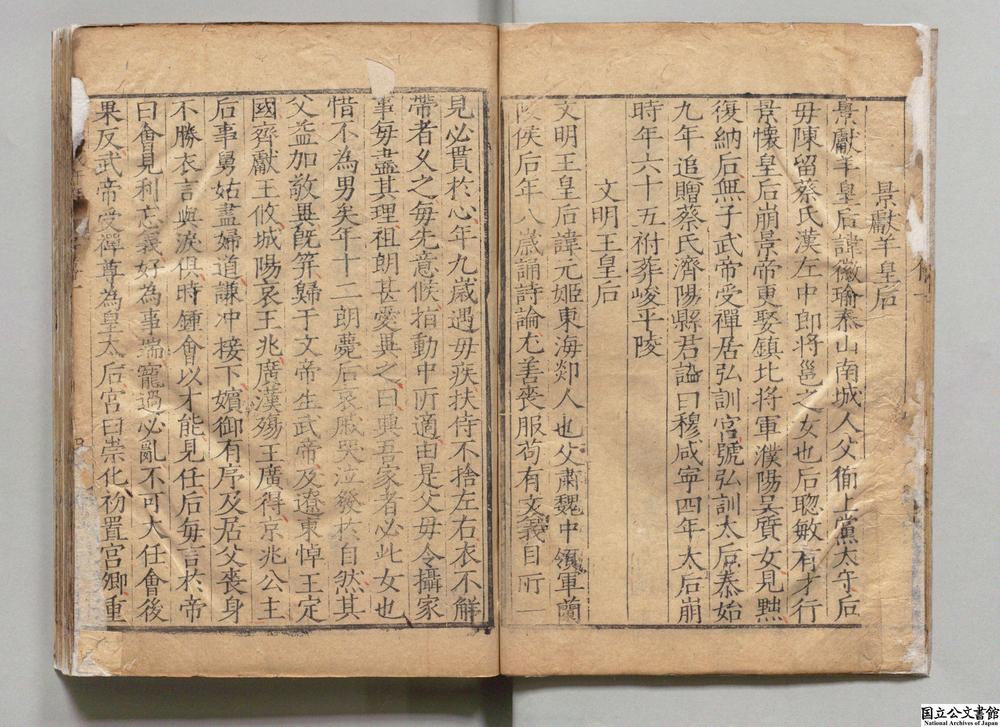 景獻羊皇后
景獻羊皇后諱徽瑜泰山南城人父衜上黨太守后
母陳留蔡氏漢左中郎將邕之女也后聦敏有才行
景懷皇后崩景帝更娶鎮北將軍濮陽吴質女見黜
復納后無子武帝受禪居弘訓宮號弘訓太后泰始
九年追贈蔡氏濟陽縣君謚曰穆咸寧四年太后崩
時年六十五祔葬峻平陵
文明王皇后
文明王皇后諱元姬東海郯人也父肅魏中領軍蘭
陵侯后年八歲誦詩論尤善喪服苟有文義目所一
見必貫於心年九歲遇母疾扶侍不捨左右衣不觧
帶者久之每先意候指動中所適由是父母令攝家
事每盡其理祖朗甚愛異之曰興吾家者必此女也
惜不為男矣年十二朗薨后哀戚哭泣發於自然其
父益加敬異既笄歸于文帝生武帝及遼東悼王定
國齊獻王攸城陽哀王兆廣漢殤王廣得京兆公主
后事舅姑盡婦道謙冲接下嬪御有序及居父喪身
不勝衣言與淚俱時鍾會以才能見任后每言於帝
曰會見利忘義好為事端寵過必亂不可大任會後
果反武帝受禪尊為皇太后宮曰崇化初置宮卿重
国立公文書館
National Archives of Japan